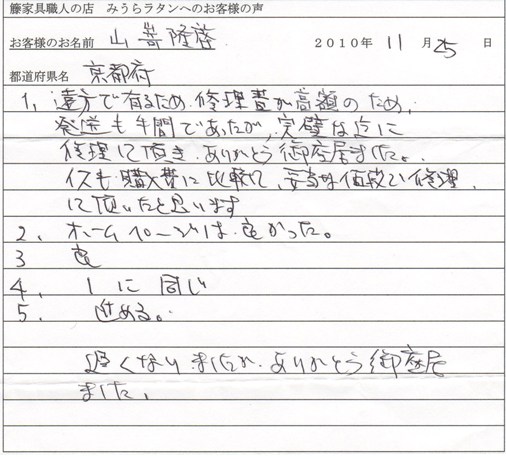 籐家具職人の店 みうらラタンへのお客様の声
お客様のお名前 山嵜隆啓 2010年 11月 25日
都道府県名 京都府
1、遠方で有るため、修理費が高額のため、
発送も手間であたが、完璧な迄に
修理して頂き、ありがとう御座居ました。
イスも購入費に比較して、妥当な価段で修理、
して頂いたと思います
2、ホームページは、良かった。
3 良
4、1に同じ
5、進める。
遅くなりましたが、ありがとう御座居
ました、